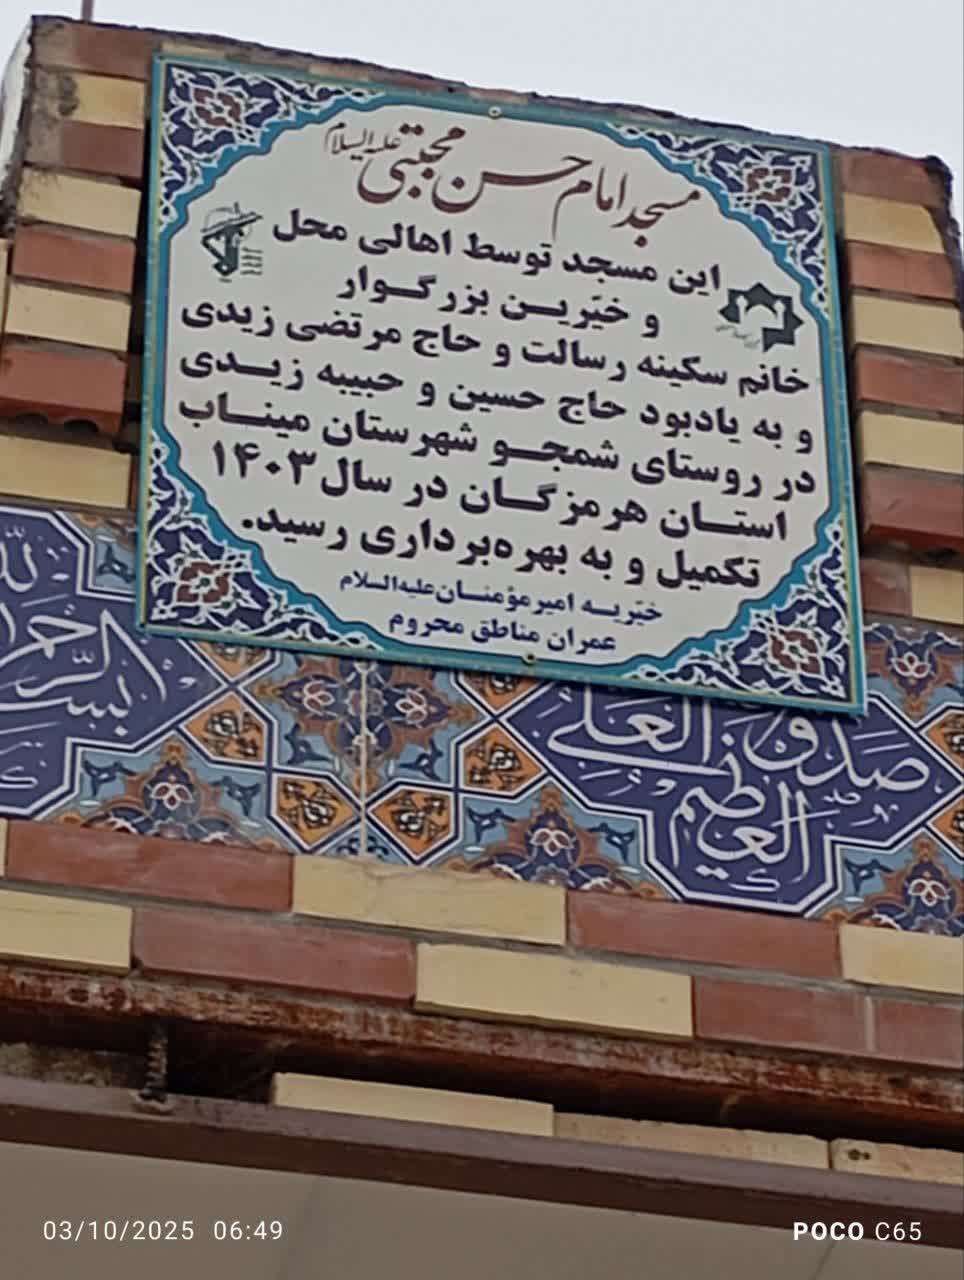 مسجد امام حسن مجتبی علیه‌السلام
این مسجد توسط اهالی محل
و خیّرین بزرگوار
خانم سکینه رسالت و حاج مرتضی زیدی
و به یادبود حاج حسین و حبیبه زیدی
در روستای شمجو شهرستان میناب
استان هرمزگان در سال ۱۴۰۳
تکمیل و به بهره‌برداری رسید.
خیّریه امیرمؤمنان علیه‌السلام
عمران مناطق محروم
بسم الله الرحم
صدق
العلی
العظیم
03/10/2025 06:49
POCO C65